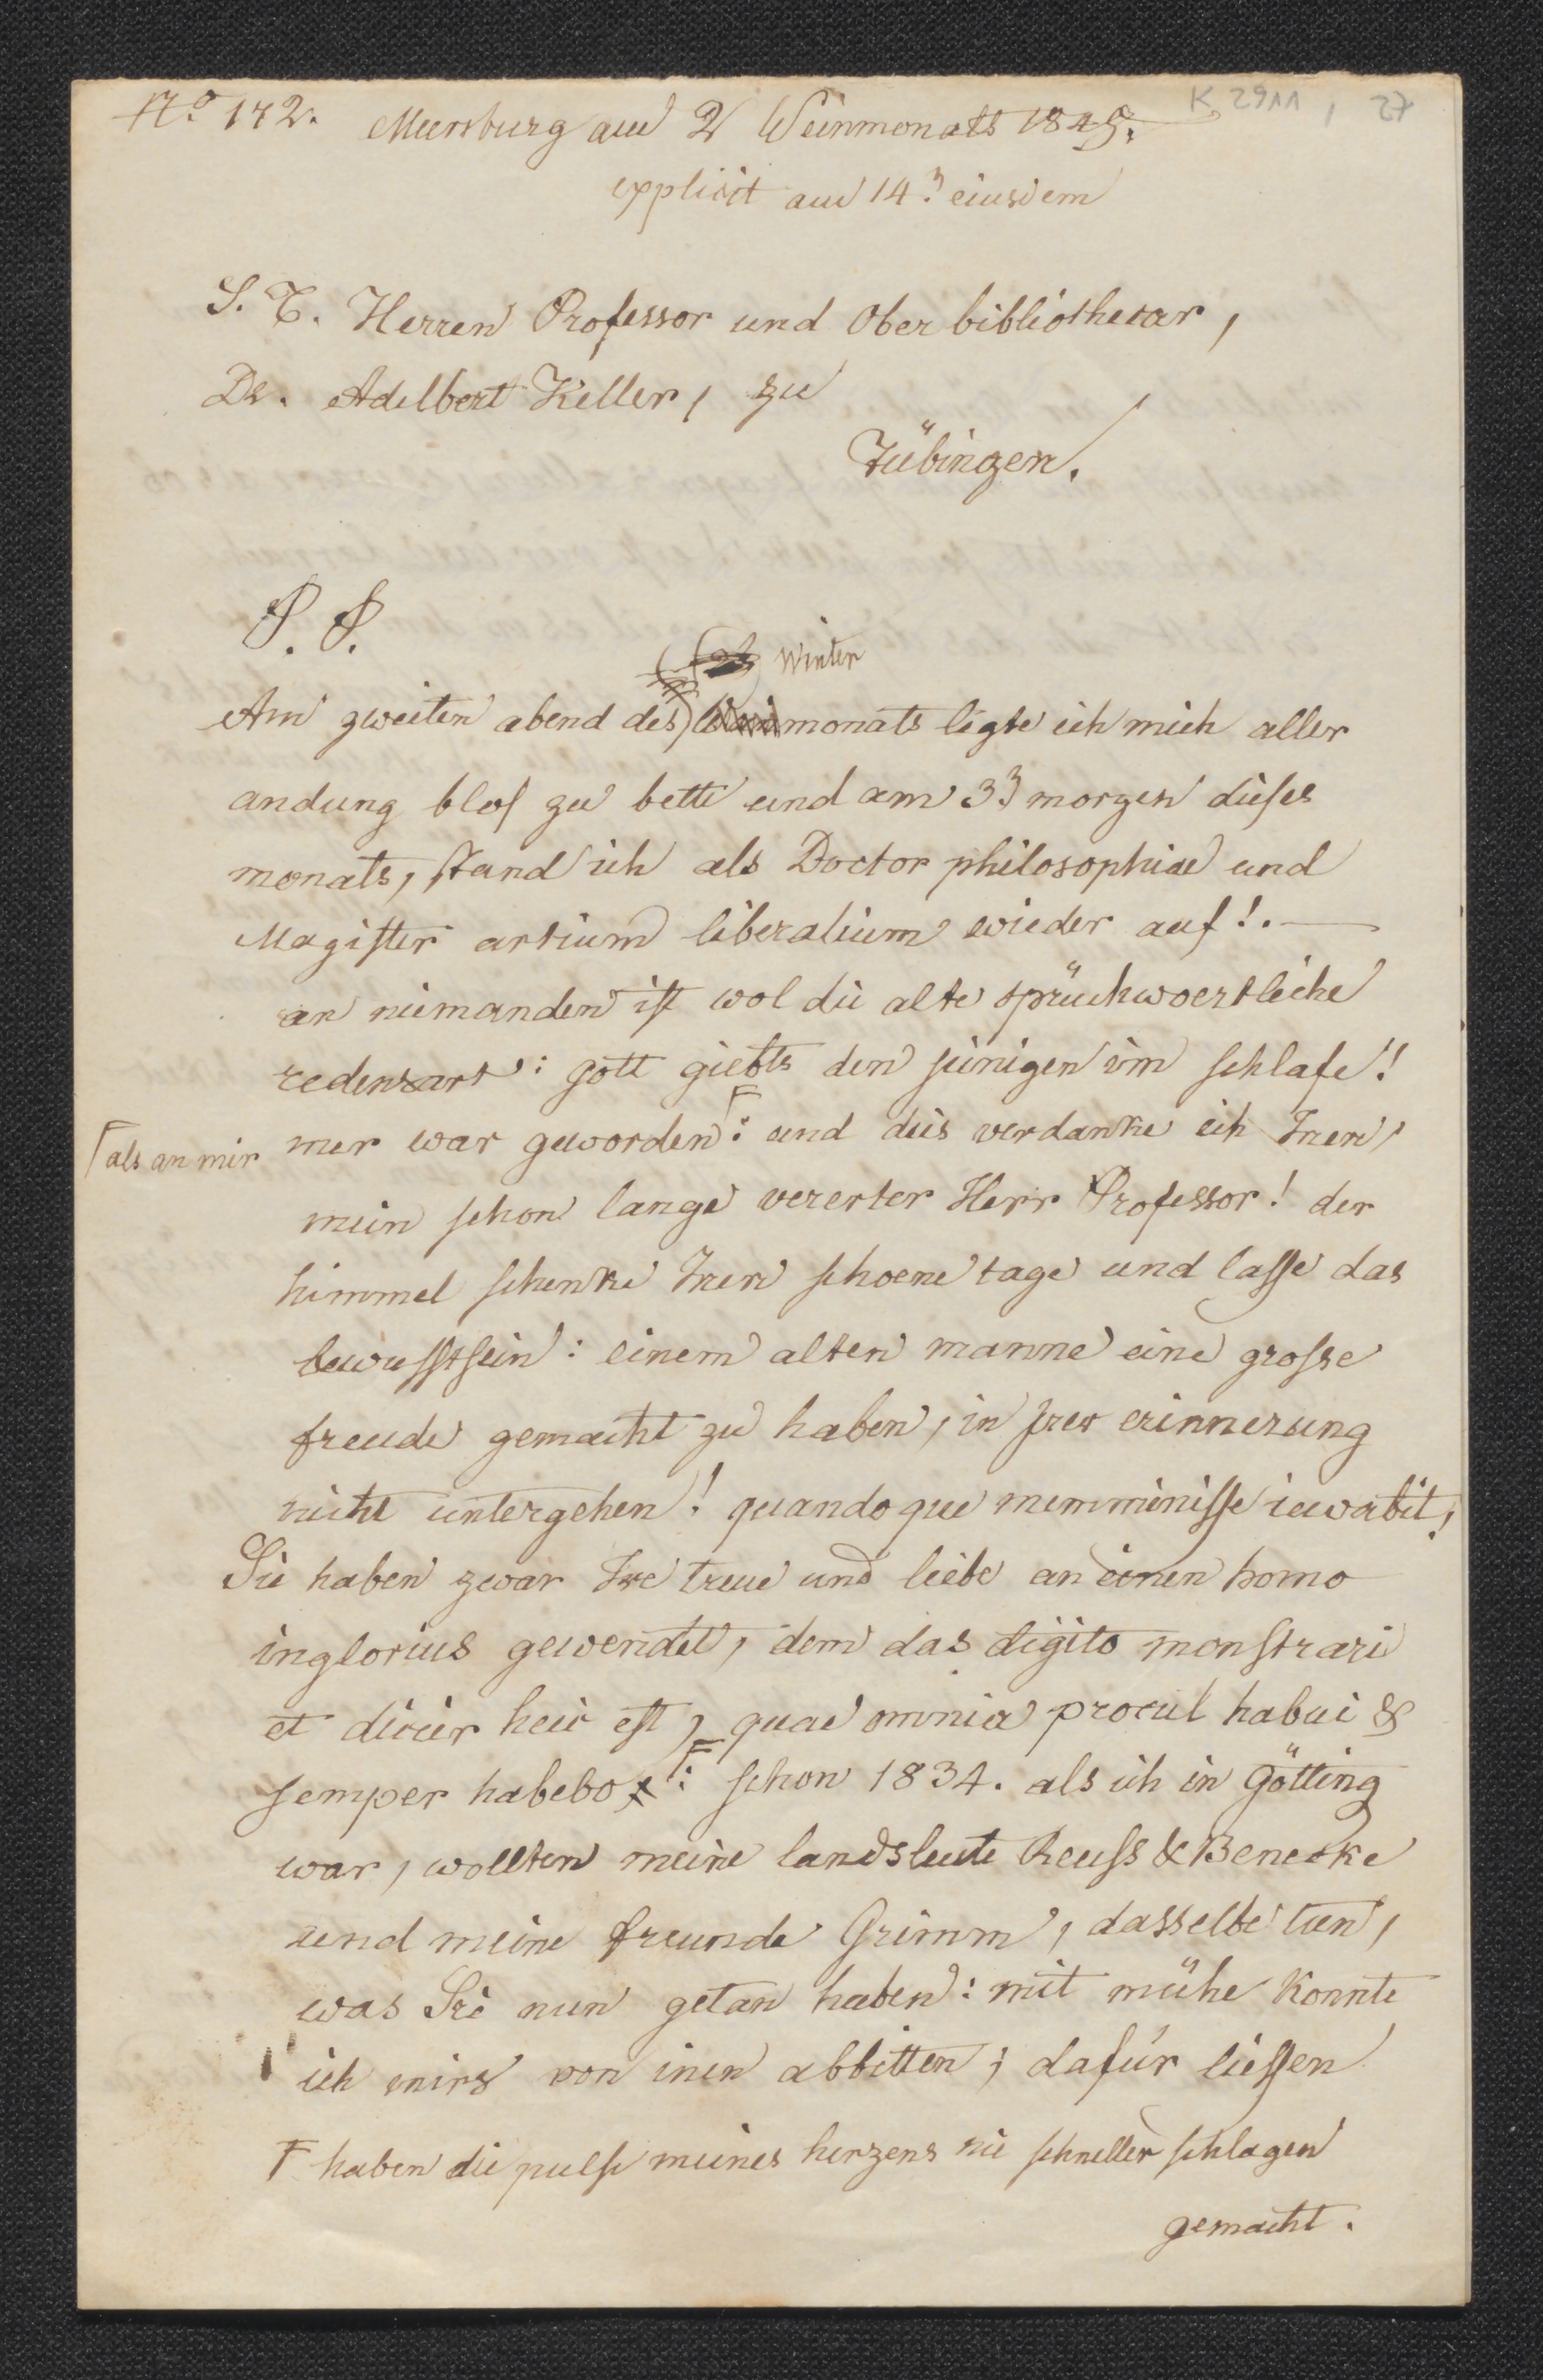 No 172. Meersburg am 2 Weinmonats 1849.
K 2911, 27
explicit am 14.n eiusdem
S. T. Herren Professor und Oberbibliothecar,
Dr. Adelbert Keller, zu
Tübingen.
P. P.
Winter
Am zweiten abend des monats legte ich mich aller
andung blos zu bette und am 3n morgen dieses
monats, stand ich als Doctor philosophiae und
Magister artium liberalium wieder auf!. —
an niemanden ist wol die alte sprüchwoertliche
redensart: gott giebts den seinigen im schlafe!
mer war geworden: und dies verdanke ich Inen,
als an mir
mein schon lange vererter Herr Professor! der
himmel schenke Inen schoene tage und lasse das
bewusstsein: einem alten manne eine grosse
freude gemacht zu haben, in irer erinnerung
nicht untergehen! quandoque memminisse iuvabit!
Sie haben zwar Ire treue und liebe an einen homo
inglorius gewendet, dem das digito monstrari
et dicier heic est, quae omnia procul habui &
semper habebo: schon 1834. als ich in Götting
war, wollten meine landsleute Reuss & Benecke
und meine freunde Grimm, dasselbe tun,
was Sie nun getan haben: mit mühe konnte
ich mirs von inen abbitten; dafür liessen
haben die pulse meines herzens nie schneller schlagen
gemacht.